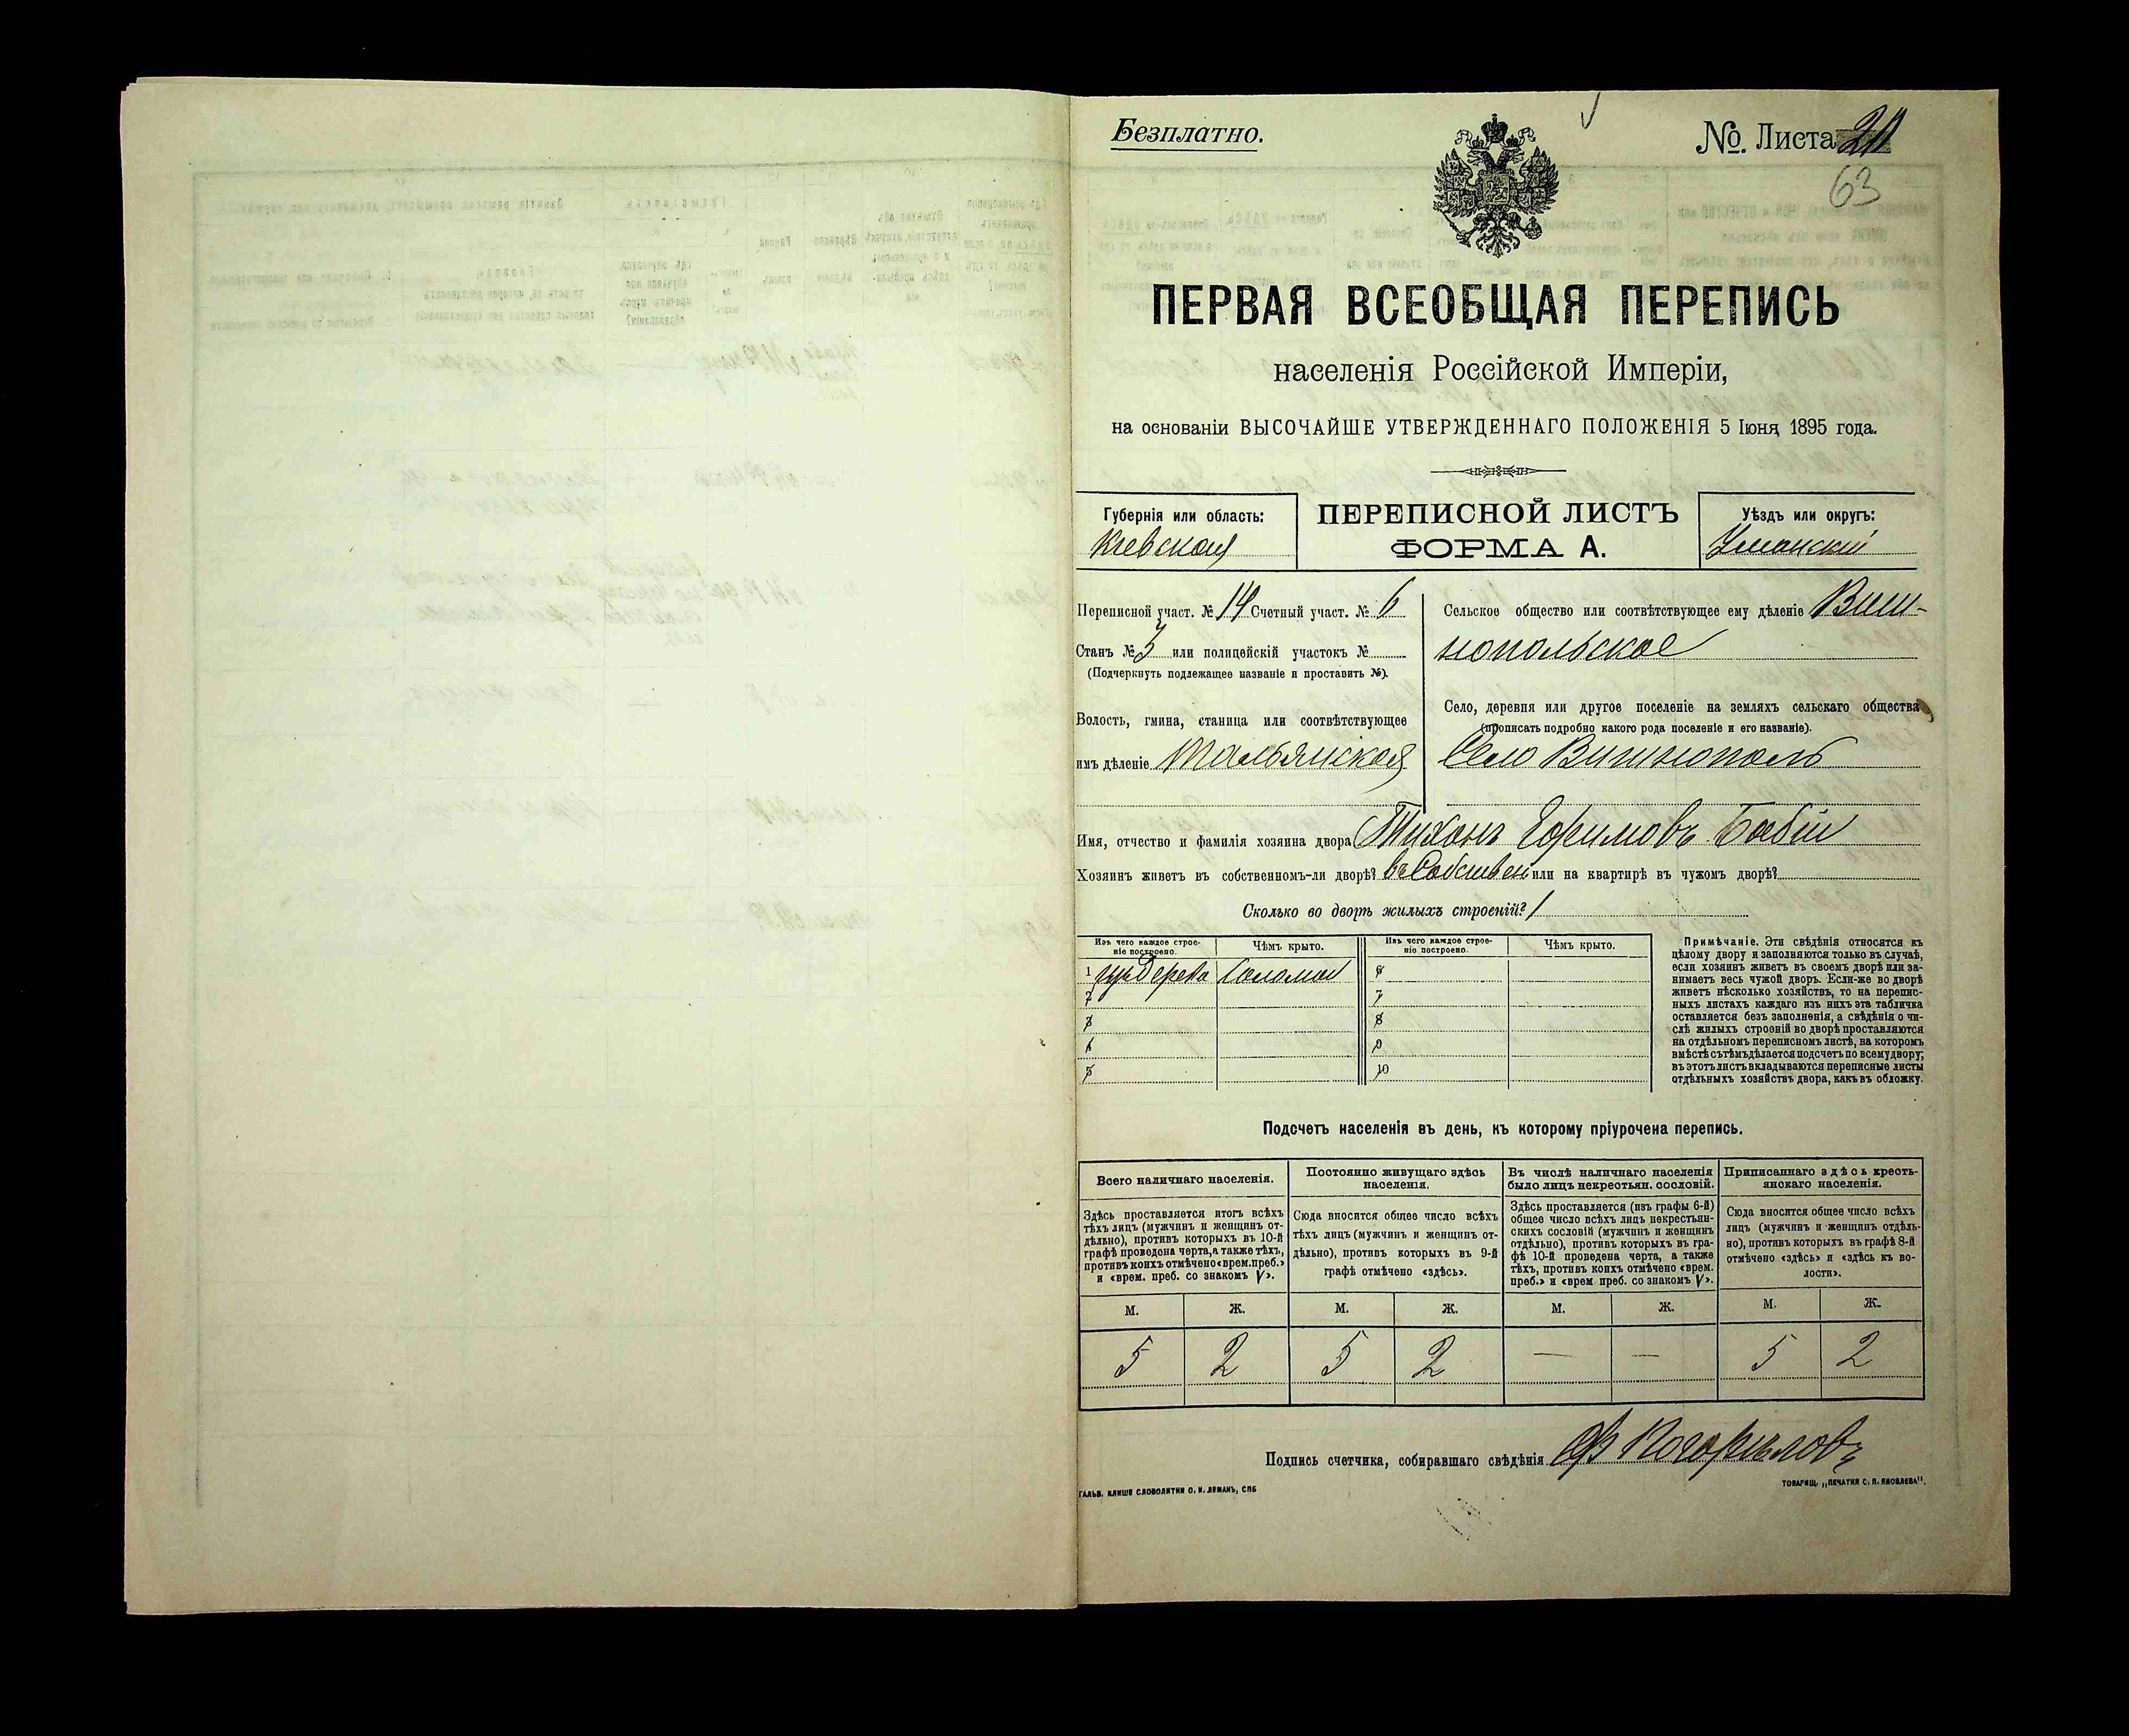 Безплатно.
№. Листа
63
ПЕРВАЯ ВСЕОБЩАЯ ПЕРЕПИСЬ
населенія Россійской Имперіи,
на основаніи ВЫСОЧАЙШЕ УТВЕРЖДЕННАГО ПОЛОЖЕНІЯ 5 Іюня 1895 года.
Губернія или область:
Кіевская
ПЕРЕПИСНОЙ ЛИСТЪ
ФОРМА А.
Уѣздъ или округъ:
Уманскій
Переписной участ. № 14 Счетный участ. № 6
Станъ № 3 или полицейскій участокъ №
(Подчеркнуть подлежащее названіе и проставить №).
Волость, гмина, станица или соотвѣтствующее
имъ дѣленіе Тальянская
Сельское общество или соотвѣтствующее ему дѣленіе Виш-
нопольское
Село, деревня или другое поселеніе на земляхъ сельскаго общества
(прописать подробно какого рода поселеніе и его названіе).
Село Вишнополь
Имя, отчество и фамилія хозяина двора Тихонъ Ефимовъ Бабій
Хозяинъ живетъ въ собственномъ-ли дворѣ? въ Собствен или на квартирѣ въ чужомъ дворѣ?
Сколько во дворѣ жилыхъ строеній? 1
Изъ чего каждое строе-
ніе построено.
Чѣмъ крыто.
Изъ чего каждое строе-
ніе построено.
Чѣмъ крыто.
1 изъ Дерева Соломой 6
2 7
3 8
4 9
5 10
Примѣчаніе. Эти свѣдѣнія относятся къ
цѣлому двору и заполняются только въ случаѣ,
если хозяинъ живетъ въ своемъ дворѣ или за-
нимаетъ весь чужой дворъ. Если-же во дворѣ
живетъ нѣсколько хозяйствъ, то на перепис-
ныхъ листахъ каждаго изъ нихъ эта табличка
оставляется безъ заполненія, а свѣдѣнія о чи-
слѣ жилыхъ строеній во дворѣ проставляются
на отдѣльномъ переписномъ листѣ, на которомъ
вмѣстѣ съ тѣмъ дѣлается подсчетъ по всему двору;
въ этотъ листъ вкладываются переписные листы
отдѣльныхъ хозяйствъ двора, какъ въ обложку.
Подсчетъ населенія въ день, къ которому пріурочена перепись.
Всего наличнаго населенія.
Здѣсь проставляется итогъ всѣхъ
тѣхъ лицъ (мужчинъ и женщинъ от-
дѣльно), противъ которыхъ въ 10-й
графѣ проведена черта, а также тѣхъ,
противъ коихъ отмѣчено «врем. преб.»
и «врем. преб. со знакомъ V».
Постоянно живущаго здѣсь
населенія.
Сюда вносится общее число всѣхъ
тѣхъ лицъ (мужчинъ и женщинъ от-
дѣльно), противъ которыхъ въ 9-й
графѣ отмѣчено «здѣсь».
Въ числѣ наличнаго населенія
было лицъ некрестьян. сословій.
Здѣсь проставляется (изъ графы 6-й)
общее число всѣхъ лицъ некрестьян-
скихъ сословій (мужчинъ и женщинъ
отдѣльно), противъ которыхъ въ гра-
фѣ 10-й проведена черта, а также
тѣхъ, противъ коихъ отмѣчено «врем.
преб.» и «врем преб. со знакомъ V».
Приписаннаго здѣсь кресть-
янскаго населенія.
Сюда вносится общее число всѣхъ
лицъ (мужчинъ и женщинъ отдѣль-
но), противъ которыхъ въ графѣ 8-й
отмѣчено «здѣсь» и «здѣсь къ во-
лости».
М. Ж. М. Ж. М. Ж. М. Ж.
5 2 5 2 — — 5 2
Подпись счетчика, собиравшаго свѣдѣнія. Погорѣловъ
ГАЛЬВ. КЛИШЕ СЛОВОЛИТНИ О. И. ЛЕМАНЪ, СПБ
ТОВАРИЩ. „ПЕЧАТНЯ С. П. ЯКОВЛЕВА".